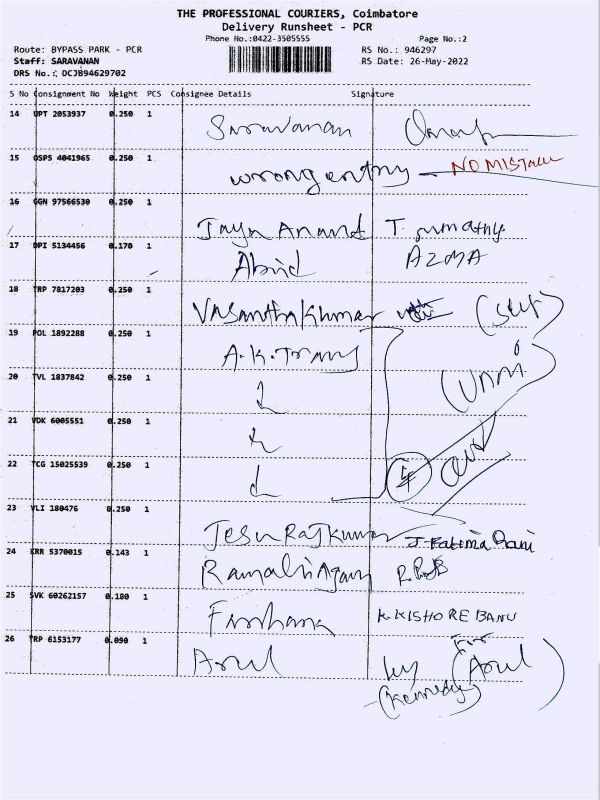 THE PROFESSIONAL COURIERS, Coimbatore
Delivery Runsheet - PCR
Phone No.:0422-3505555 Page No.:2
Route: BYPASS PARK - PCR RS No.: 946297
Staff: SARAVANAN RS Date: 26-May-2022
DRS No.: DCJB94629702
S No Consignment No Weight PCS Consignee Details Signature
14 UPT 2053937 0.250 1 Saravanan
15 OSPS 4041965 0.250 1 wrong entry - NO MISTAKE
16 GGN 97566530 0.250 1 Jaya Anand T. Sumathy
17 DPI 5134456 0.170 1 Abind AZMA
18 TRP 7817203 0.250 1 Vasanthakumar (self)
19 POL 1892288 0.250 1 A.K. Trans
20 TVL 1837842 0.250 1 (Unni)
21 VDK 6005551 0.250 1
22 TCG 15025539 0.250 1 4
23 VLI 180476 0.250 1 Jesu Rajkumar J. Fatima Rani
24 KRR 5370015 0.143 1 Ramalingam
25 SVK 60262157 0.180 1 Farhana K. KISHORE BANU
26 TRP 6153177 0.090 1 Arul (For Arul)
(Kennedy)